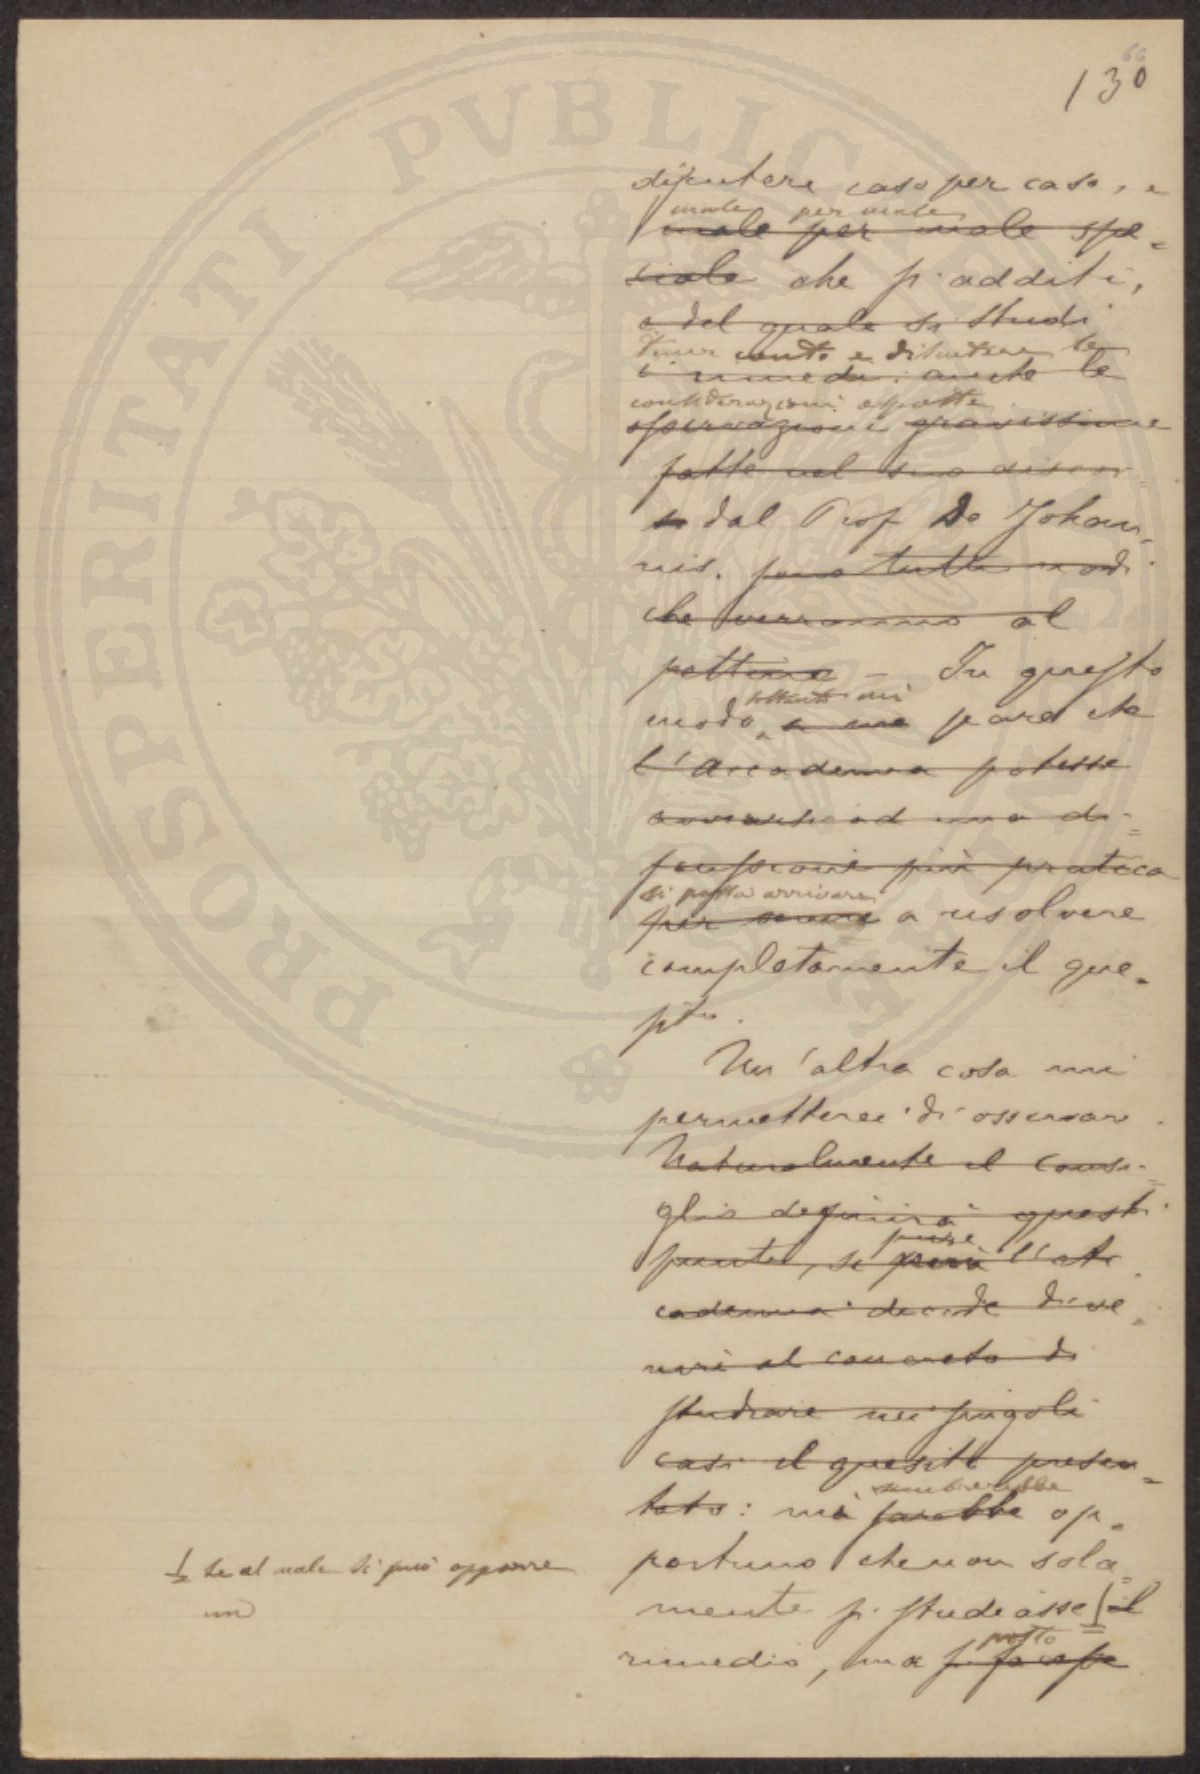 66
130
discutere caso per caso, e
male per male
male per male spe-
ciale che si additi,
e del quale si studi
tener conto e discutere le
i rimedi. anche le
considerazioni esposte
osservazioni gravissime
fatte nel suo discor-
so dal Prof. De Johan-
nis. sono tutti nodi
che verranno al
pettine — In questo
soltanto mi
modo, a me pare che
l'Accademia potesse
avviarsi ad una di-
scussione più pratica
si possa arrivare
per venire a risolvere
completamente il que-
sito.
Un'altra cosa mi
permetterei di osservare.
Naturalmente il Consi-
glio definirà questi
pure
punti, se però l'Ac-
cademia decide di ve-
nire al concreto di
studiare nei singoli
casi il quesito presen-
sembrerebbe
tato: mi parebbe op-
portuno che non sola-
mente si studiasse il
posto
rimedio, ma si facesse
se al male si può opporre
un
PROSPERITATI PVBLICAE